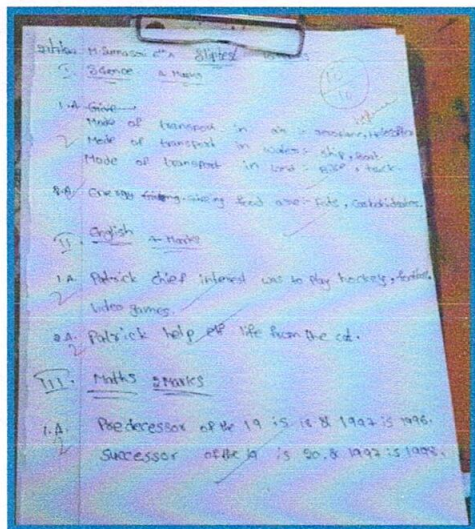 Sliptest
I. Science 4 Marks
10
10
1.A Give
Mode of transport in air = aeroplane,
Mode of transport in water = ship, boat
Mode of transport in land -
2.A Energy giving food are - Fats, Carbohidrates.
II. English 4 Marks
1.A Patrick chief interest was to play hockey,
2
video games.
2.A. Patrick help elf life from the cat.
2
III. Maths 2 Marks
1.A. Predecessor of the 19 is 18 & 1997 is 1996.
2
Successor of the 19 is 20, & 1997 is 1998.